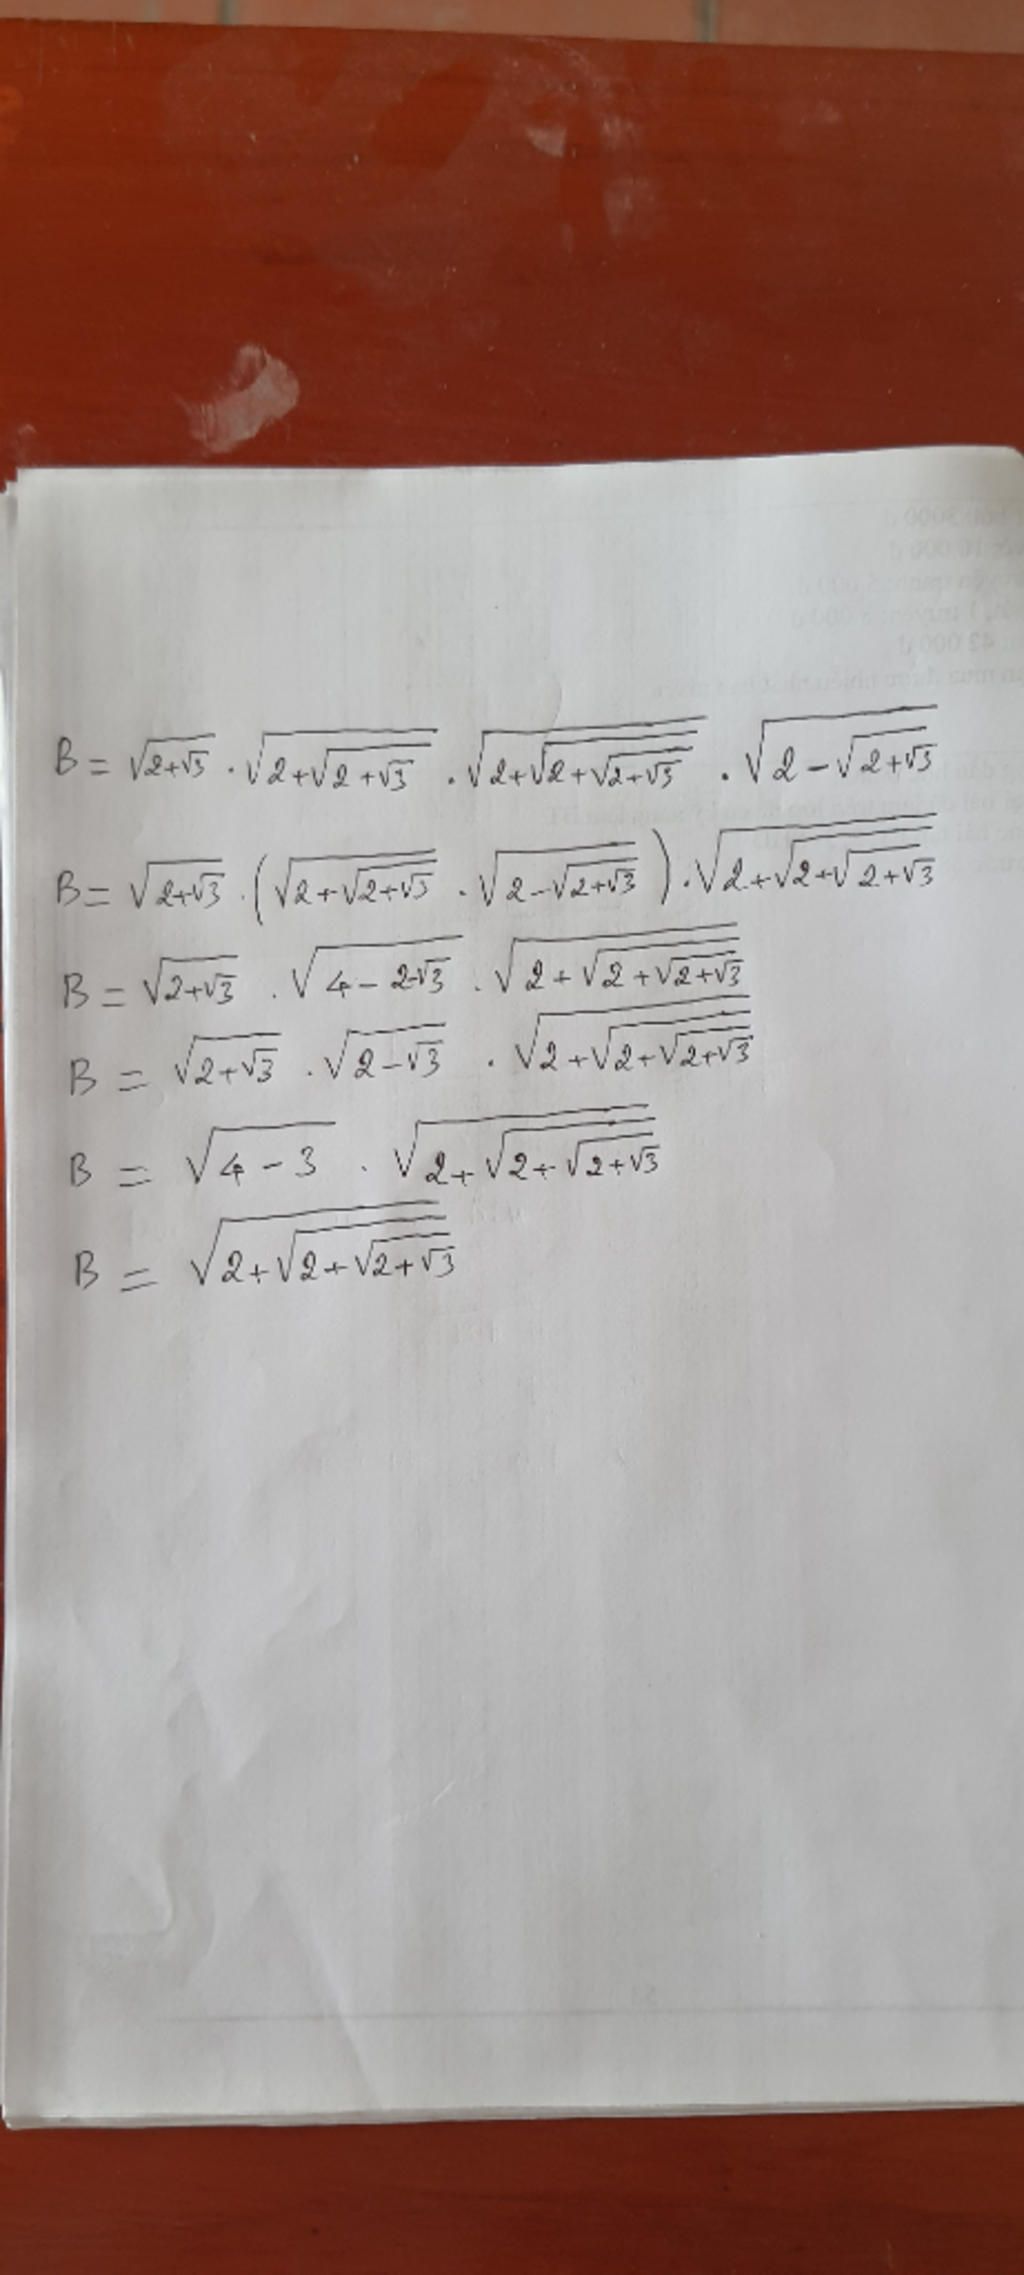 B = √(2+√3) . √(2+√(2+√3)) . √(2+√(2+√(2+√3))) . √(2-√(2+√3))
B = √(2+√3) . (√(2+√(2+√3)) . √(2-√(2+√3))) . √(2+√(2+√(2+√3)))
B = √(2+√3) . √(4-2-√3) . √(2+√(2+√(2+√3)))
B = √(2+√3) . √(2-√3) . √(2+√(2+√(2+√3)))
B = √(4-3) . √(2+√(2+√(2+√3)))
B = √(2+√(2+√(2+√3)))